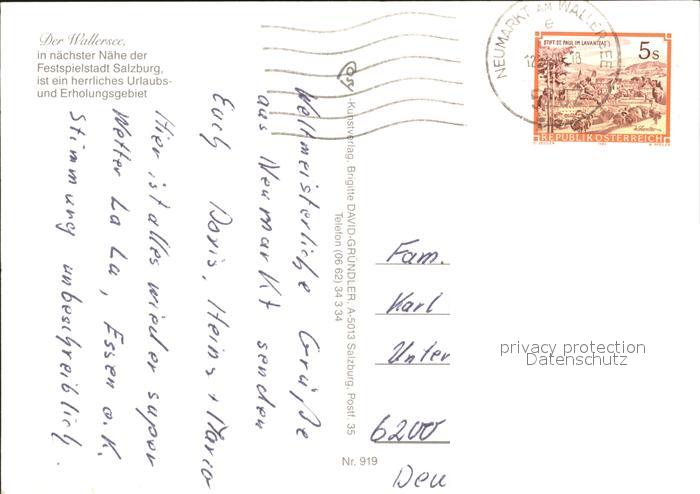 Der Wallersee,
in nächster Nähe der
Festspielstadt Salzburg,
ist ein herrliches Urlaubs-
und Erholungsgebiet
Weltmeisterliche Grüße
aus Neumarkt senden
Euch Doris, Heinz + Marco
Hier ist alles wieder super
Wetter La La, Essen o.K.
Stimmung unbeschreiblich.
-Kunstverlag, Brigitte DAVID-GRÜNDLER, A-5013 Salzburg, Postf. 35
Telefon (06 62) 34 3 34
Nr. 919
NEUMARKT AM WALLERSEE
e
STIFT ST. PAUL IM LAVANTTAL
5s
REPUBLIK ÖSTERREICH
Fam.
Karl
Unter
6200
Deu
privacy protection
Datenschutz